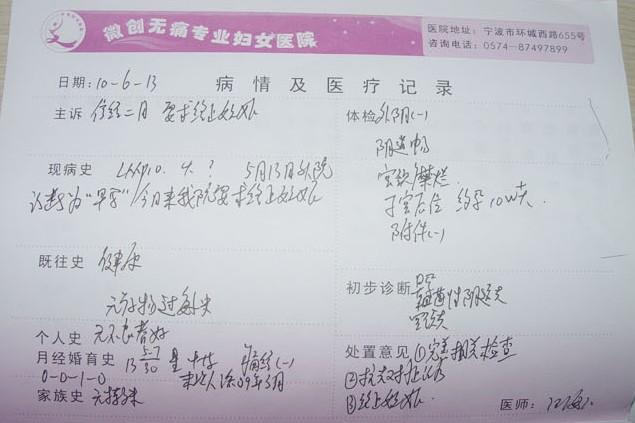 微创无痛专业妇女医院
医院地址：宁波市环城西路655号
咨询电话：0574-87497899
日期：10-6-13
病情及医疗记录
主诉 停经二月 要求终止妊娠
现病史 5月13日外院
诊断为"早孕"今日来我院要求终止妊娠
既往史 健康
无药物过敏史
个人史 无不良嗜好
月经婚育史 13 5-7/30 量中等 痛经(-)
0-0-1-0 末次人流09年3月
家族史
体检 外阴(-)
阴道
宫颈 糜烂
子宫后位 约孕10W大
附件(-)
初步诊断 早孕
细菌性阴道炎
宫颈炎
处置意见 ①完善相关检查
②抗炎对症治疗
③终止妊娠
医师：